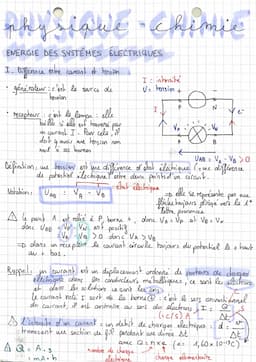 physique - chimie
ENERGIE DES SYSTÈMES ÉLECTRIQUES
I. Différence entre courant et tension
générateur : c'est la source de tension
I : intensité
U : tension
récepteur : c'est la lampe : elle
brille si elle est traversé par
un courant I. Pour cela, il
doit y avoir une tension non
nul à ses bornes
I
e-
VA VB
A B
UAB = VA - VB > 0
Définition : une tension est une différence d'état électrique (= une différence
de potentiel électrique) entre deux points d'un circuit.
état électrique
Notation : UAB = VA - VB
⇒ elle se représente par une
flèche toujours dirigé vers la 1e
lettre prononcée
le point A est relié à P, borne +, donc VA = VP et VB = VN
donc UAB = VP - VN est positif
VA - VB > 0 donc VA > VB
⇒ dans un récepteur le courant circule toujours du potentiel le + haut
au + bas.
Rappel : un courant est un déplacement ordonné de porteurs de charges
électriques dans les conducteurs métalliques, ce sont les électrons
et dans les solutions ce sont les ions.
Le courant noté I sort de la borne ⊕ : c'est le sens conventionnel
du courant, il est contraire au sens des électrons.
L'intensité d'un courant = un débit de charges électriques
traversant une section de fil pendant une durée Δt.
I = Q/Δt
avec Q = n × e (e = 1,60 × 10^-19 C)
Q = A.s
= mA.h
nombre de charge
électrons
charge élémentaire